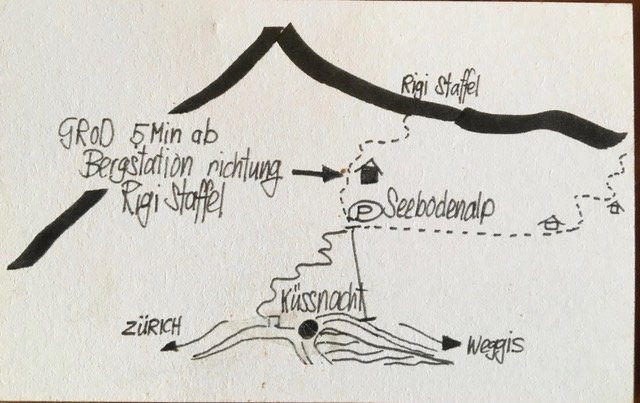 Rigi Staffel
GROD 5 Min ab
Bergstation richtung
Rigi Staffel
P Seebodenalp
Küssnacht
ZÜRICH
Weggis